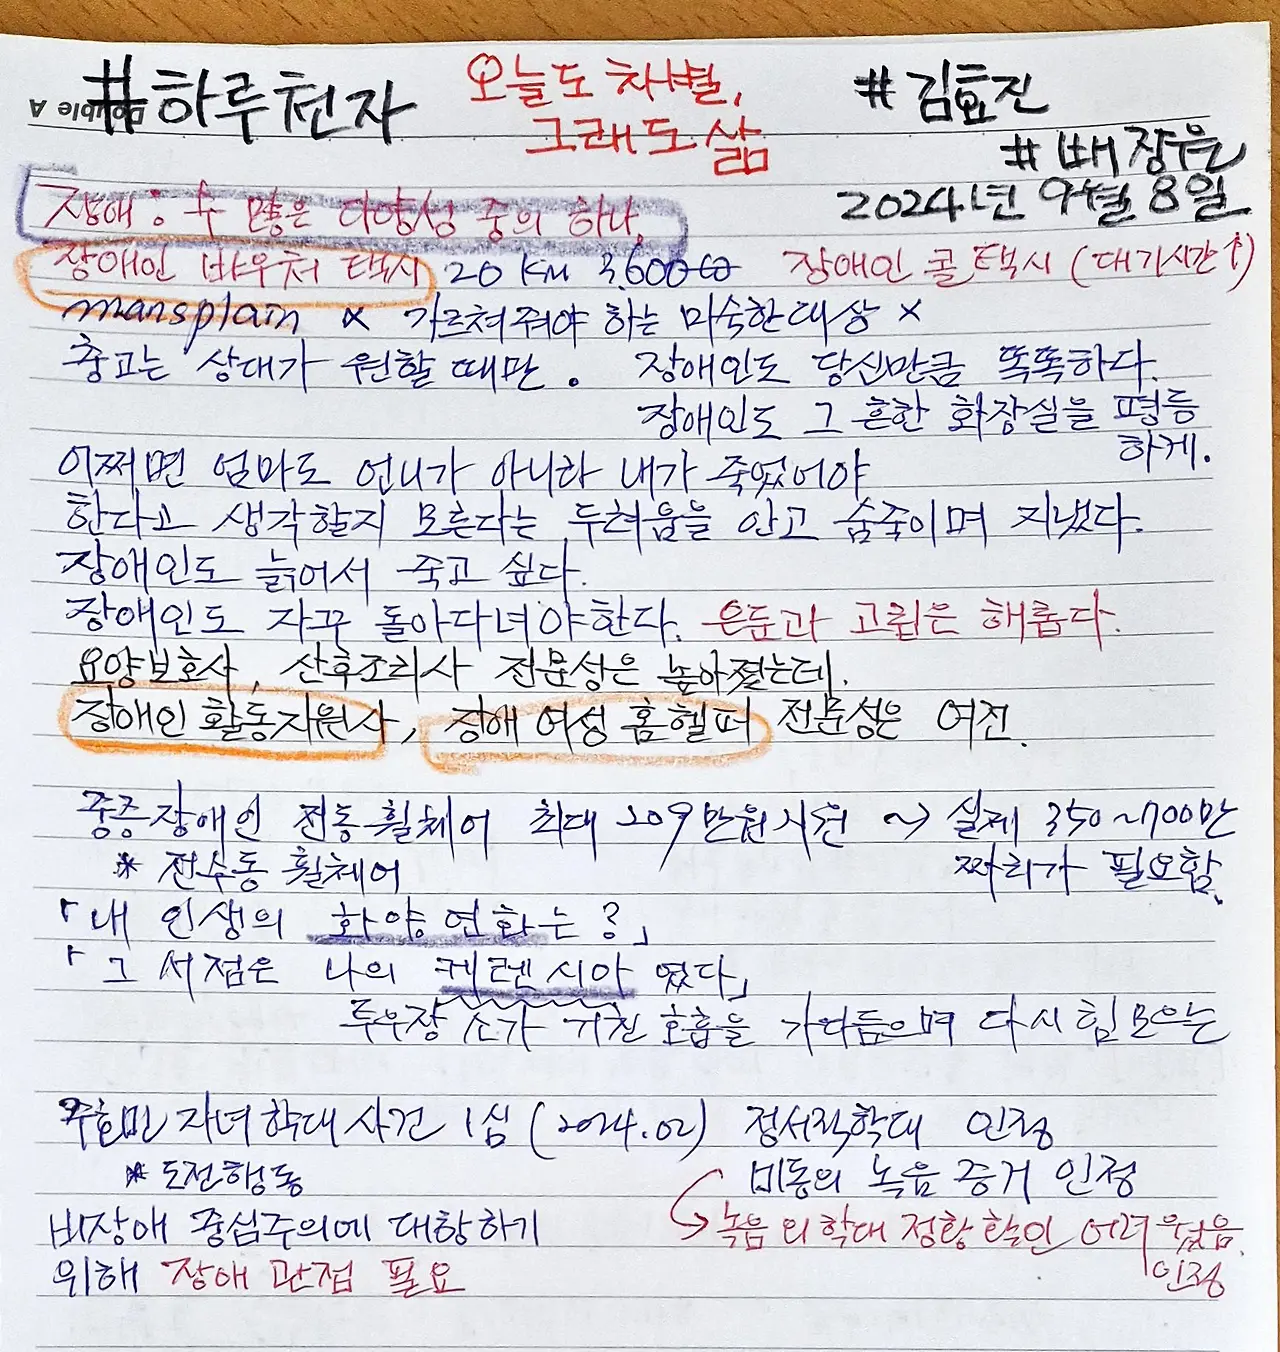 #하루천자 오늘도 차별, #김효진
그래도 삶 #빼장우은
Double A
2024년 9월 8일
장애 : 수 많은 다양성 중의 하나.
장애인 바우처 택시 20km 3,600원 장애인 콜택시 (대기시간↑)
mansplain ∝ 가르쳐줘야 하는 미숙한 대상 ×
충고는 상대가 원할 때만. 장애인도 당신만큼 똑똑하다.
장애인도 그 흔한 화장실을 평등
하게.
어쩌면 엄마도 언니가 아니라 내가 죽었어야
한다고 생각할지 모른다는 두려움을 안고 숨죽이며 지냈다.
장애인도 늙어서 죽고 싶다.
장애인도 자꾸 돌아다녀야한다. 은둔과 고립은 해롭다.
요양보호사, 산후조리사 전문성은 높아졌는데.
장애인 활동지원사, 장애 여성 홈헬퍼 전문성은 여전.
중증장애인 전동휠체어 최대 209만원지원 ~> 실제 350~700만
* 전수동 휠체어 짜리가 필요함.
「내 인생의 화양연화는?」
「그 서점은 나의 케렌시아 였다」
투우장 소가 거친 호흡을 가다듬으며 다시 힘 모으는
주호민 자녀 학대사건 1심 (2024.02) 정서적학대 인정
* 도전행동 비동의 녹음 증거 인정
비장애 중심주의에 대항하기 녹음 외 학대 정황 확인 어려웠음.
위해 장애 관점 필요 인정